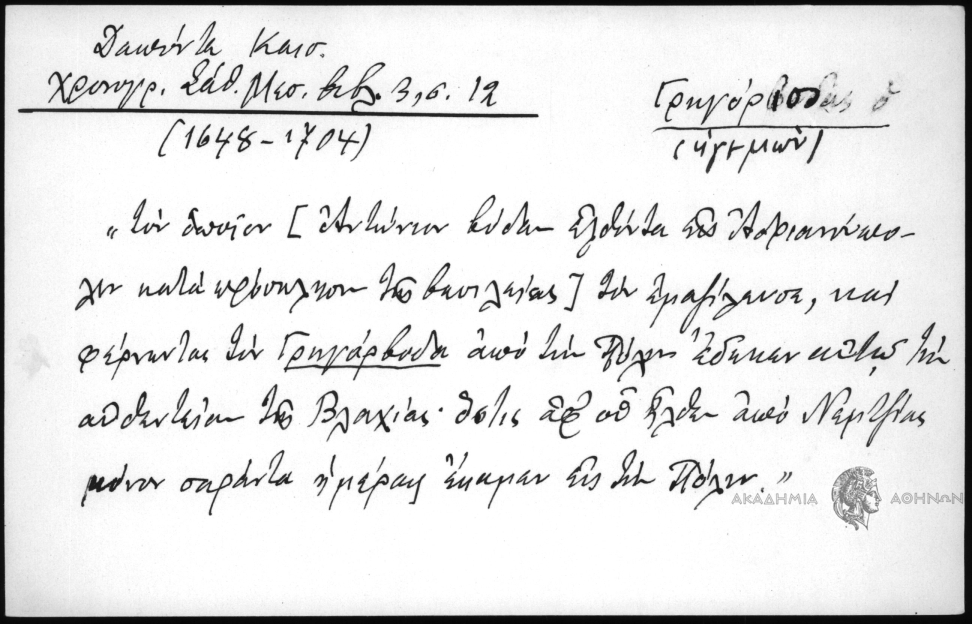 Δαπόντα Καισ.
Χρονογρ. Σάθ. Μεσ. βιβλ. 3, σ. 12
(1648-1704)
Γρηγόρβοδας ὁ
(ἡγεμών)
„τὸν ὁποῖον [Ἀντώνιον βόδαν ἐλθόντα εἰς Ἀδριανούπο-
λιν κατὰ πρόσκλησιν τῆς βασιλείας] τὸν ἐμαζίλευσε, καὶ
φέρνοντας τὸν Γρηγόρβοδα ἀπὸ τὴν Πόλιν ἔδωκαν αὐτῷ τὴν
αὐθεντείαν τῆς Βλαχίας· ὅστις ἀφ' οὗ ἦλθεν ἀπὸ Νεμιτζίας
μόνον σαράντα ἡμέρας ἔκαμεν εἰς τὴν Πόλιν."
ΑΚΑΔΗΜΙΑ ΑΘΗΝΩΝ